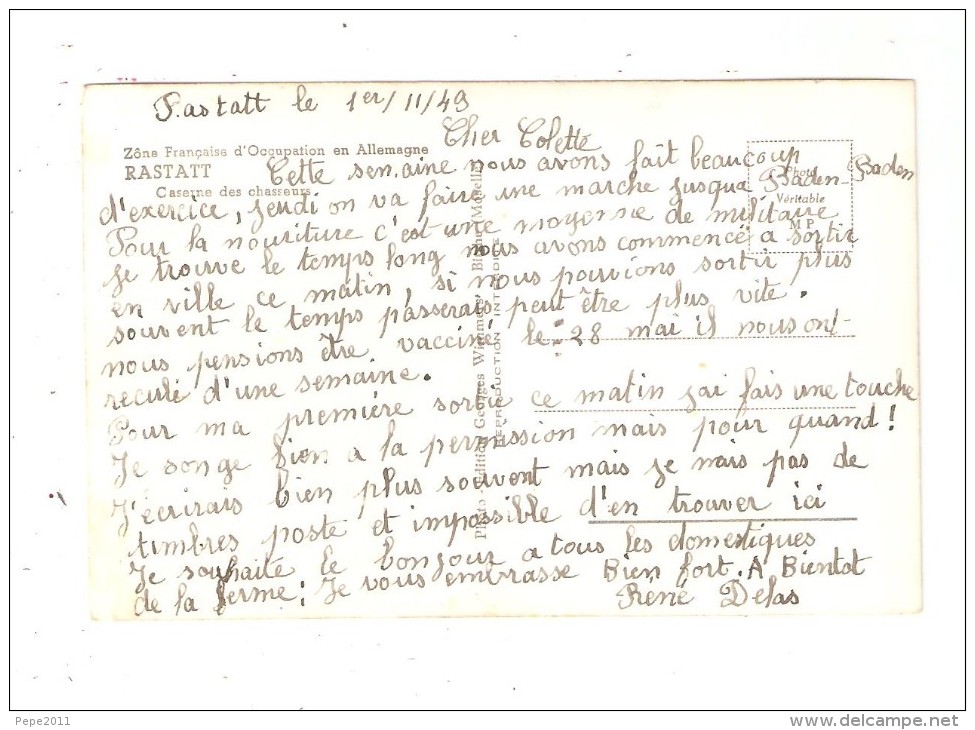 Rastatt le 1er/11/49
Cher Colette
Zône Française d'Occupation en Allemagne
RASTATT
Caserne des chasseurs
Photo
Véritable
M P
Cette semaine nous avons fait beaucoup
d'exercice, jeudi on va faire une marche jusqua Baden-Baden
Pour la nouriture c'est une moyenne de militaire
Je trouve le temps long nous avons commencé a sortir
en ville ce matin, si nous pouvions sortir plus
souvent le temps passerais peut être plus vite.
nous pensions être vacciné le 28 mai il nous ont
reculé d'une semaine.
Pour ma première sortie ce matin jai fais une touche
Je songe bien a la permission mais pour quand!
J'écrirais bien plus souvent mais je nais pas de
timbres poste et impossible d'en trouver ici
Je souhaite le bonjour a tous les domestiques
de la ferme: Je vous embrasse Bien fort. A Bientot
René Delas
Photo-Edition Georges
REPRODUCTION INTERDITE
Pepe2011
www.delcampe.net